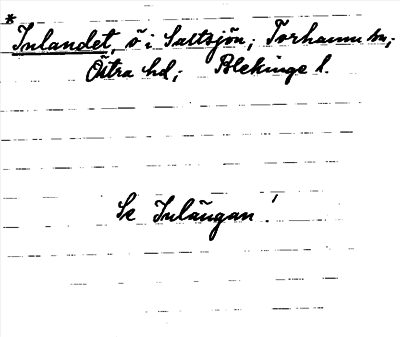 *Inlandet, ö i Saltsjön; Torhamn sn;
Östra hd; Blekinge l.
Se Inlängan!